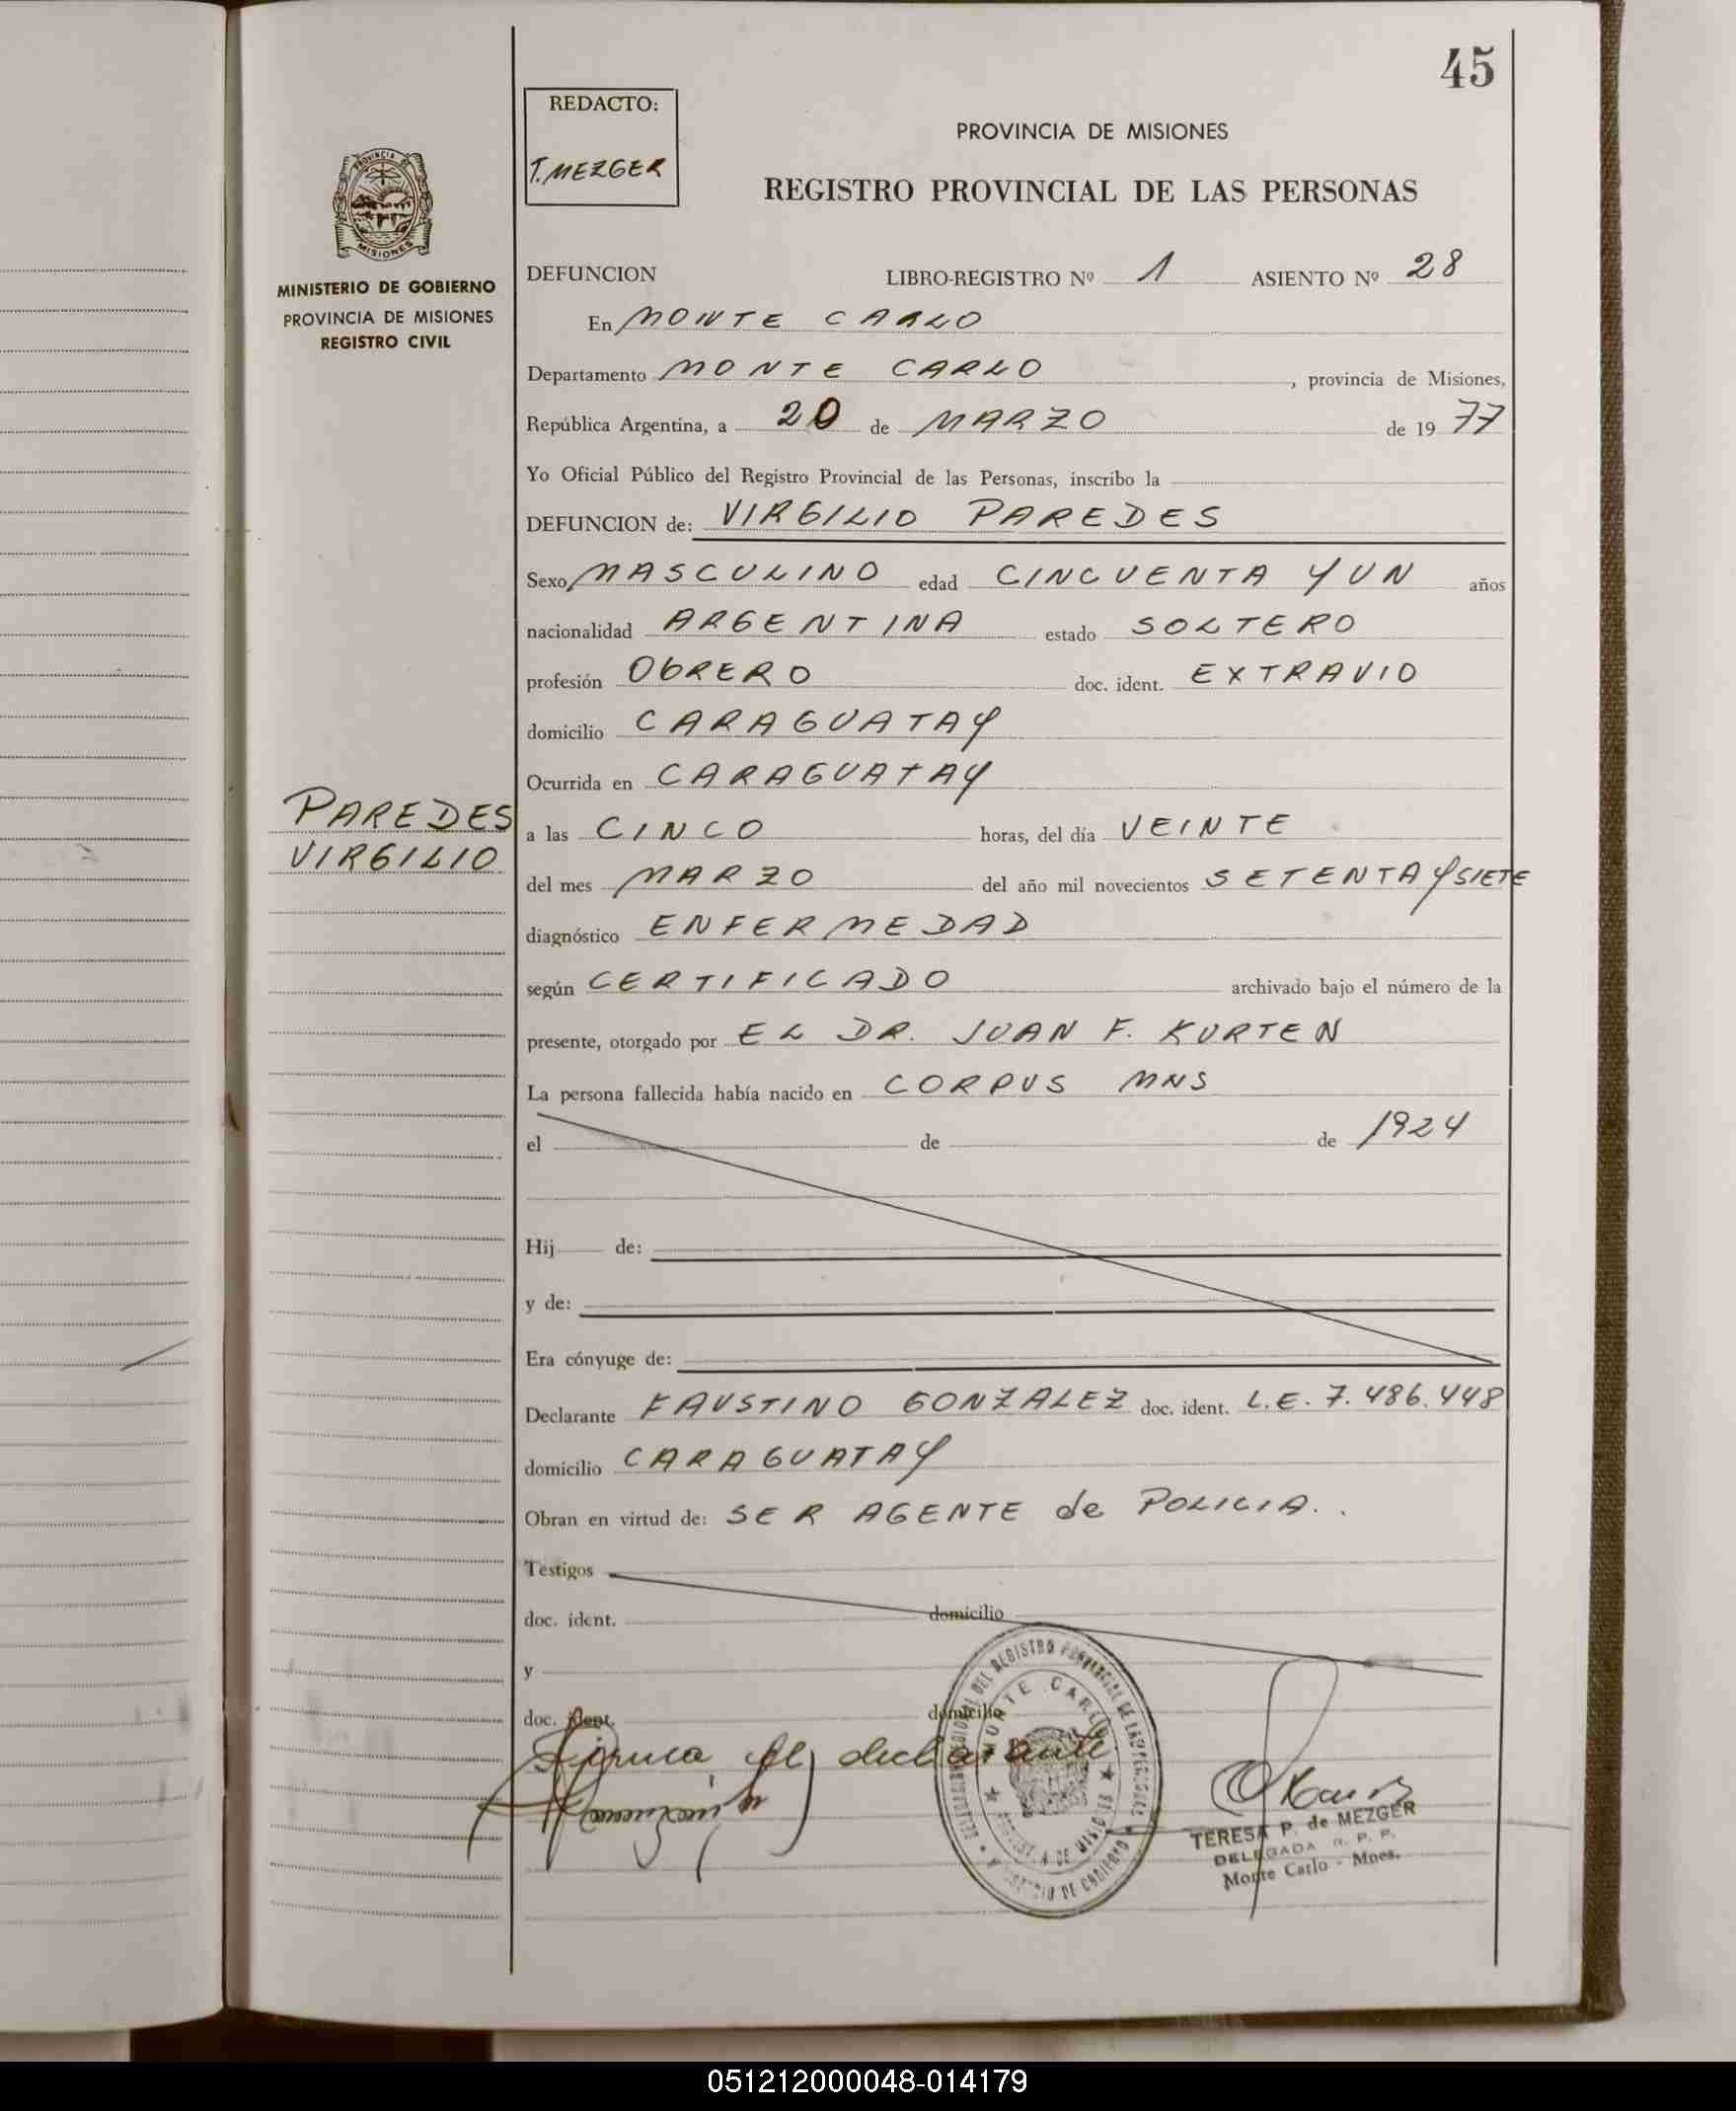 45
REDACTO:
T. MEZGER
PROVINCIA DE MISIONES
REGISTRO PROVINCIAL DE LAS PERSONAS
PROVINCIA DE
MISIONES
MINISTERIO DE GOBIERNO
PROVINCIA DE MISIONES
REGISTRO CIVIL
DEFUNCION LIBRO-REGISTRO Nº 1 ASIENTO Nº 28
En MONTE CARLO
Departamento MONTE CARLO, provincia de Misiones,
República Argentina, a 20 de MARZO de 1977
Yo Oficial Público del Registro Provincial de las Personas, inscribo la
DEFUNCION de: VIRGILIO PAREDES
Sexo MASCULINO edad CINCUENTA Y UN años
nacionalidad ARGENTINA estado SOLTERO
profesión OBRERO doc. ident. EXTRAVIO
domicilio CARAGUATAY
Ocurrida en CARAGUATAY
PAREDES
VIRGILIO
a las CINCO horas, del día VEINTE
del mes MARZO del año mil novecientos SETENTA Y SIETE
diagnóstico ENFERMEDAD
según CERTIFICADO archivado bajo el número de la
presente, otorgado por EL DR. JUAN F. KURTEN
La persona fallecida había nacido en CORPUS MNS
el de de 1924
Hij de:
y de:
Era cónyuge de:
Declarante FAUSTINO GONZALEZ doc. ident. L.E. 7.486.448
domicilio CARAGUATAY
Obran en virtud de: SER AGENTE de POLICIA.
Testigos
doc. ident. domicilio
y
doc. ident. domicilio
Firma el declarante
MONTE CARLO
TERESA P. de MEZGER
DELEGADA R. P. P.
Monte Carlo - Mnes.
051212000048-014179